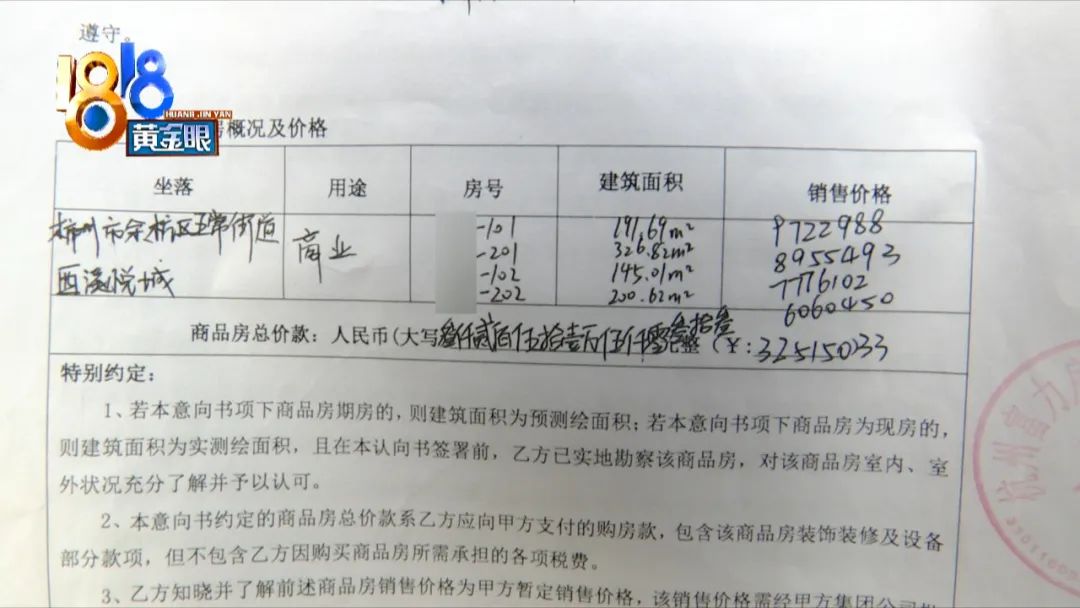 遵守。
1818
HUANG JIN YAN
黄金眼
概况及价格
坐落 用途 房号 建筑面积 销售价格
杭州市余杭区五常街道 商业 -101 191.69m² 9722988
西溪悦城 -201 326.82m² 8955493
-102 145.01m² 7776102
-202 200.62m² 6060450
商品房总价款：人民币(大写叁仟贰佰伍拾壹万伍仟零叁拾叁整（¥:32515033
特别约定：
1、若本意向书项下商品房期房的，则建筑面积为预测绘面积；若本意向书项下商品房为现房的，
则建筑面积为实测绘面积，且在本认向书签署前，乙方已实地勘察该商品房，对该商品房室内、室
外状况充分了解并予以认可。
2、本意向书约定的商品房总价款系乙方应向甲方支付的购房款，包含该商品房装饰装修及设备
部分款项，但不包含乙方因购买商品房所需承担的各项税费。
3、乙方知晓并了解前述商品房销售价格为甲方暂定销售价格，该销售价格需经甲方集团公司
杭州富力房